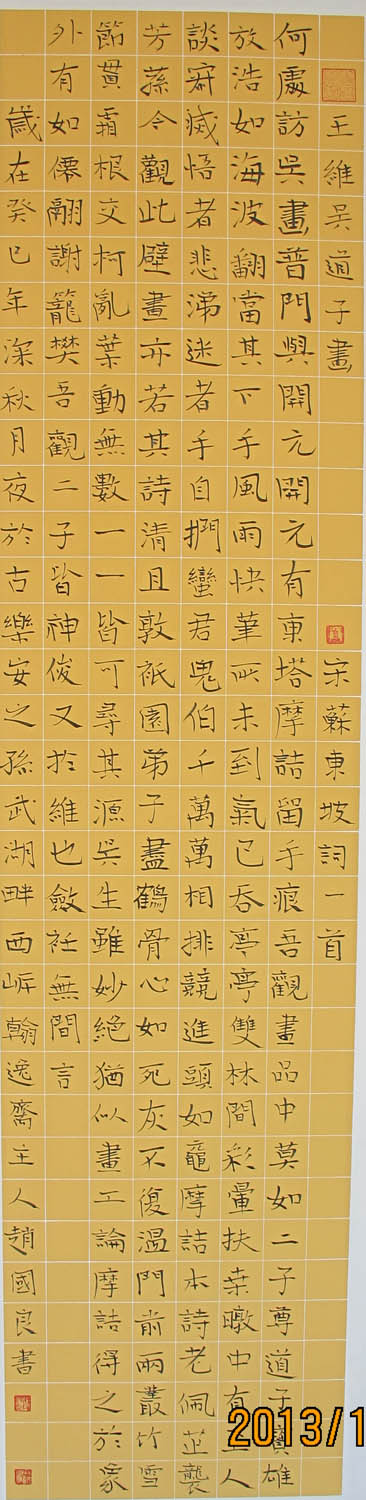 王維吳道子畫 宋蘇東坡詞一首
何處訪吳畫普門與開元開元有東塔摩詰留手痕吾觀畫品中莫如二子尊道子實雄
放浩如海波翻當其下手風雨快筆所未到氣已吞亭亭雙林間彩暈扶桑暾中有人
談寂滅悟者悲涕迷者手自捫蠻君鬼伯千萬萬相排競進頭如黿摩詰本詩老佩芷襲
芳蓀今觀此壁畫亦若其詩清且敦祇園弟子盡鶴骨心如死灰不復溫門前兩叢竹雪
節貫霜根交柯亂葉動無數一一皆可尋其源吳生雖妙絕猶似畫工論摩詰得之於象
外有如僊翮謝籠樊吾觀二子皆神俊又於維也斂衽無間言
歲在癸巳年深秋月夜於古樂安之孫武湖畔西岸翰逸齋主人趙國良書
2013/1